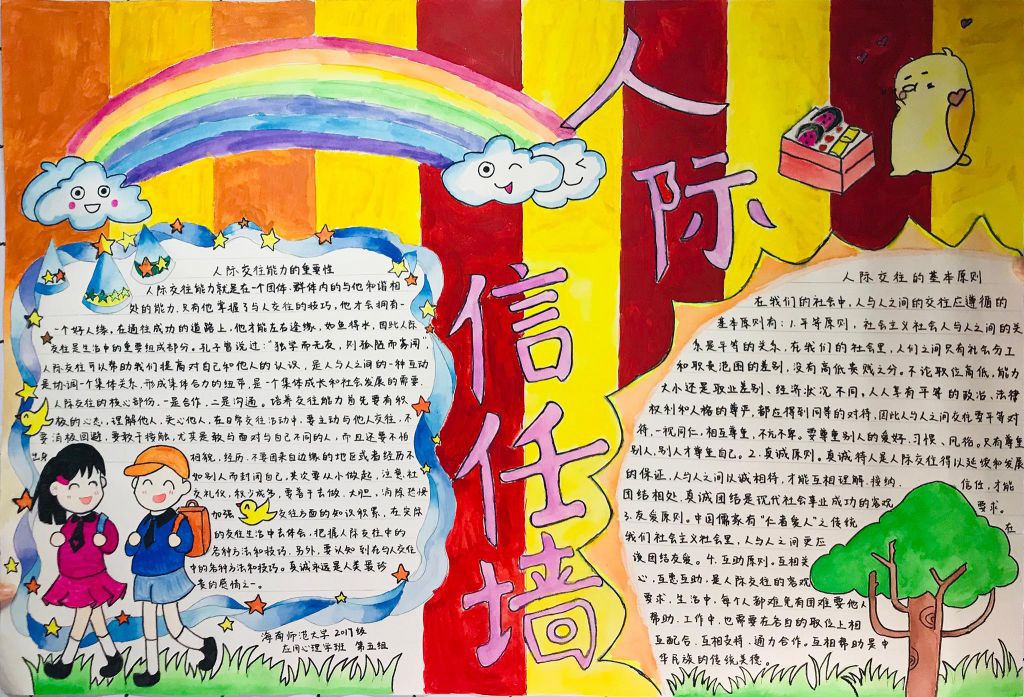 人际
信任墙
人际交往能力的重要性
人际交往能力就是在一个团体、群体内的与他和谐相
处的能力,只有他掌握了与人交往的技巧,他才会拥有一
一个好人缘,在通往成功的道路上,他才能左右逢缘,如鱼得水,因此人际
交往是生活中的重要组成部分。孔子曾说过:“独学而无友,则孤陋而寡闻”
人际交往可以帮助我们提高对自己和他人的认识,是人与人之间的一种互动
是协调一个集体关系,形成集体合力的纽带,是一个集体成长和社会发展的需要,
人际交往的核心部份,一是合作,二是沟通。培养交往能力首先要有积
极的心态,理解他人,关心他人,在日常交往活动中,要主动与他人交往,不
要消极回避,要敢于接触,尤其是敢与面对与自己不同的人,而且还要不怕
出身 相貌,经历,不要因来自边缘的地区或者经历不
如别人而封闭自己,其次要从小做起,注意社
交礼仪,积少成多,要善于去做,大胆,消除恐惧
加强 交往方面的知识积累,在实际
的交往生活中去体会,把握人际交往中的
各种方法和技巧,另外,要认知到在与人交往
中的各种方法和技巧。真诚永远是人类最珍
贵的感情之一。
海南师范大学2017级
应用心理学班 第五组
人际交往的基本原则
在我们的社会中,人与人之间的交往应遵循的
基本原则有:1.平等原则,社会主义社会人与人之间的关
系是平等的关系,在我们的社会里,人们之间只有社会分工
和职责范围的差别,没有高低贵贱之分。不论职位高低,能力
大小还是职业差别,经济状况不同,人人享有平等的政治,法律
权利和人格的尊严,都应得到同等的对待,因此人与人之间交往要平等对
待,一视同仁,相互尊重,不亢不卑,要尊重别人的爱好、习惯、风俗。只有尊重
别人,别人才尊重自己。2.真诚原则。真诚待人是人际交往得以延续和发展
的保证,人与人之间以诚相待,才能互相理解,接纳, 信任,才能
团结相处,真诚团结是现代社会事业成功的客观 要求。
3.友爱原则。中国儒家有“仁者爱人”之传统 在
我们社会主义社会里,人与人之间更应
该团结友爱。4.互助原则。互相关
心,互惠互助,是人际交往的客观
要求,生活中,每个人都难免有困难要他人
帮助,工作中,也需要在各自的职位上相
互配合,互相支持,通力合作,互相帮助是中
华民族的传统美德。